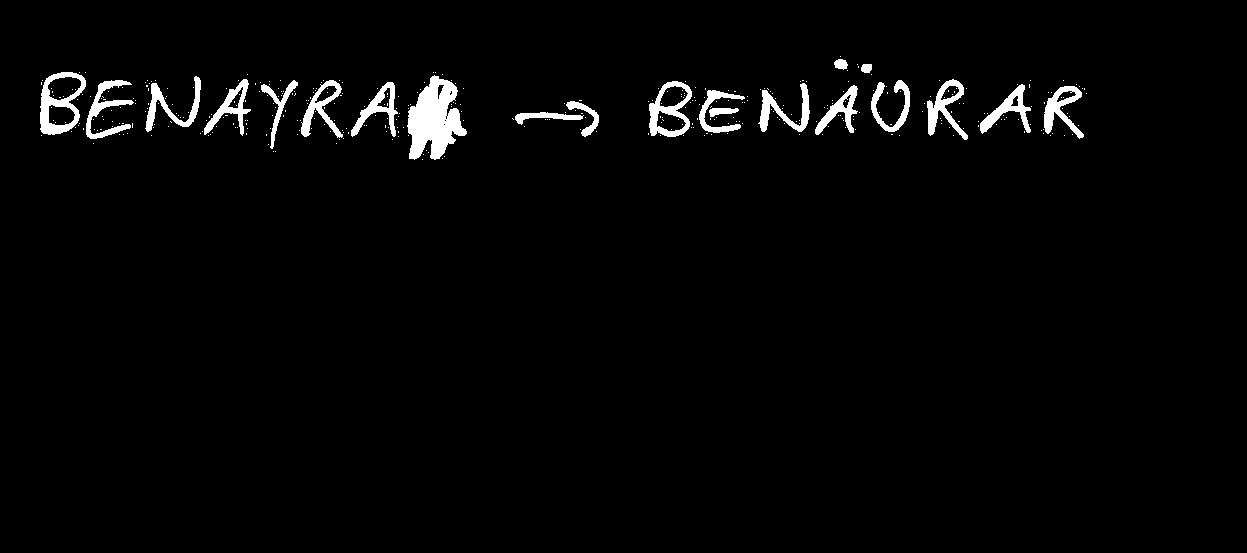 BENAYRA → BENÄURAR